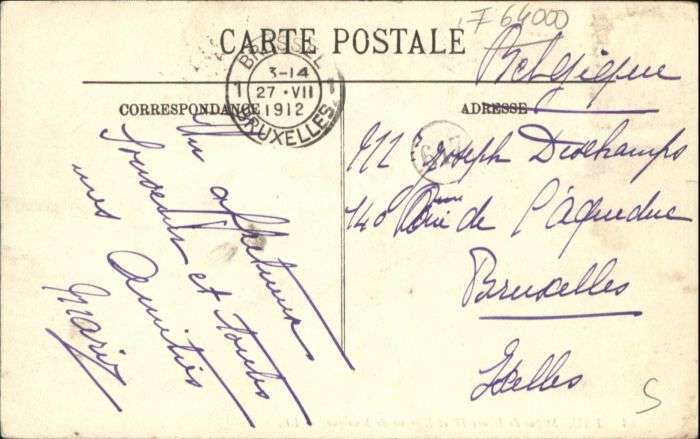 F 64000
CARTE POSTALE
Belgique
CORRESPONDANCE
ADRESSE
BRUSSEL
1
3-14
27 · VII
1912
BRUXELLES
Un affectueux
Souvenir et toutes
mes Amitiés
Marie
M Joseph Deschamps
140 Rue de l'Aqueduc
Bruxelles
Ixelles
S